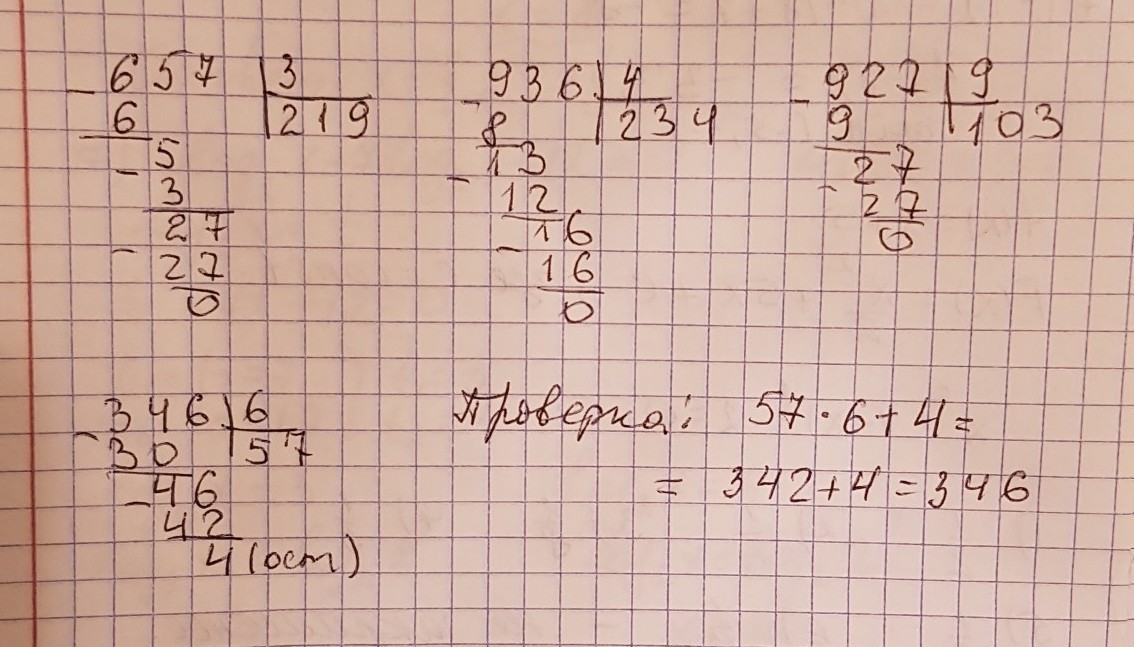 - 657 | 3
6 | 219
- 5
3
27
- 27
0
- 936 | 4
8 | 234
- 13
12
16
- 16
0
- 927 | 9
9 | 103
27
- 27
0
- 346 | 6
30 | 57
- 46
42
4 (ост)
Проверка: 57 · 6 + 4 =
= 342 + 4 = 346